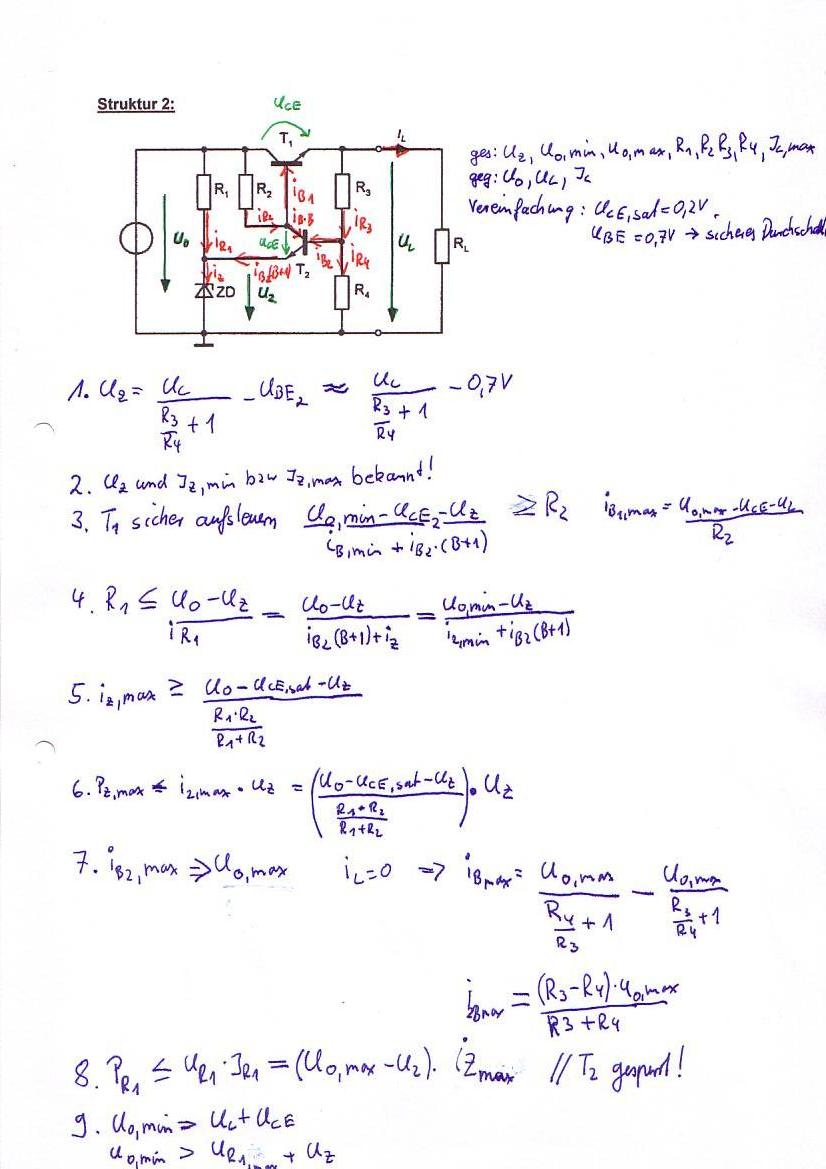 Struktur 2:
U_CE
T₁
I_L
R₁ R₂ i_B1 R₃
i_R2 i_B·B
U₀ i_R1 U_CE i_B2 i_R3 U_L R_L
i_Z i_B2(B+1) T₂ i_R4
ZD U_Z R₄
ges: U_Z, U_0,min, U_0,max, R₁, R₂ R₃, R₄, I_C,max
geg: U₀, U_L, I_L
Vereinfachung: U_CE,sat = 0,2V.
U_BE = 0,7V → sicheres
1. U_Z = U_L / (R₃/R₄ + 1) - U_BE2 ≈ U_L / (R₃/R₄ + 1) - 0,7V
2. U_Z und I_Z,min bzw I_Z,max bekannt!
3. T₁ sicher aufsteuern (U_0,min - U_CE2 - U_Z) / (i_B,min + i_B2·(B+1)) ≥ R₂ i_B1,max = (U_0,max - U_CE - U_L) / R₂
4. R₁ ≤ (U_0 - U_Z) / i_R1 = (U_0 - U_Z) / (i_B2(B+1) + i_Z) = (U_0,min - U_Z) / (i_Z,min + i_B2(B+1))
5. i_Z,max ≥ (U_0 - U_CE,sat - U_Z) / (R₁·R₂ / (R₁+R₂))
6. P_Z,max ≤ i_Z,max · U_Z = ((U_0 - U_CE,sat - U_Z) / (R₁·R₂ / (R₁+R₂))) · U_Z
7. i_B2,max ⇒ U_0,max i_L=0 ⇒ i_Bmax = U_0,max / (R₄/R₃ + 1) - U_0,max / (R₃/R₄ + 1)
i_2Bmax = (R3-R4)·U_0,max / (R3+R4)
8. P_R1 ≤ U_R1 · I_R1 = (U_0,max - U_Z) · i_Zmax // T₂ gesperrt!
9. U_0,min > U_L + U_CE
U_0,min > U_R1,max + U_Z